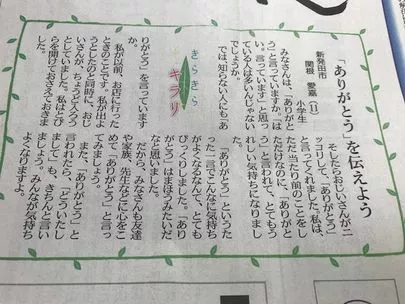 「ありがとう」を伝えよう
新発田市　小学生
関根　愛嘉 (11)
みなさんは、「ありがと
う」と言っていますか。「は
い。言っています」と思っ
ている人は多いんじゃない
でしょうか。
では、知らない人にも「あ
りがとう」を言っています
か。
私が以前、お店に行った
ときのことです。私が出よ
うとしたのと同時に、おじ
いさんが、ちょうど入ろう
としていました。私はとび
らを開けておさえておきま
した。
きらきら
キラリ
そしたらおじいさんがニ
ッコリして、「ありがとう」
と言ってくれました。私は、
ただ当たり前のことをし
ただけなのに、「ありがと
う」と言われて、とてもう
れしい気持ちになりまし
た。
「ありがとう」というた
った一言でこんなに気持ち
がよくなるなんて、とても
びっくりしました。「あり
がとう」はまほうみたいだ
なと思いました。
だから、みなさんも友達
や家族、先生などに心をこ
めて「ありがとう」と言っ
てみましょう。
また、「ありがとう」と
言われたら、「どういたし
まして」も、きちんと言い
ましょう。みんなが気持ち
よくなりますよ。